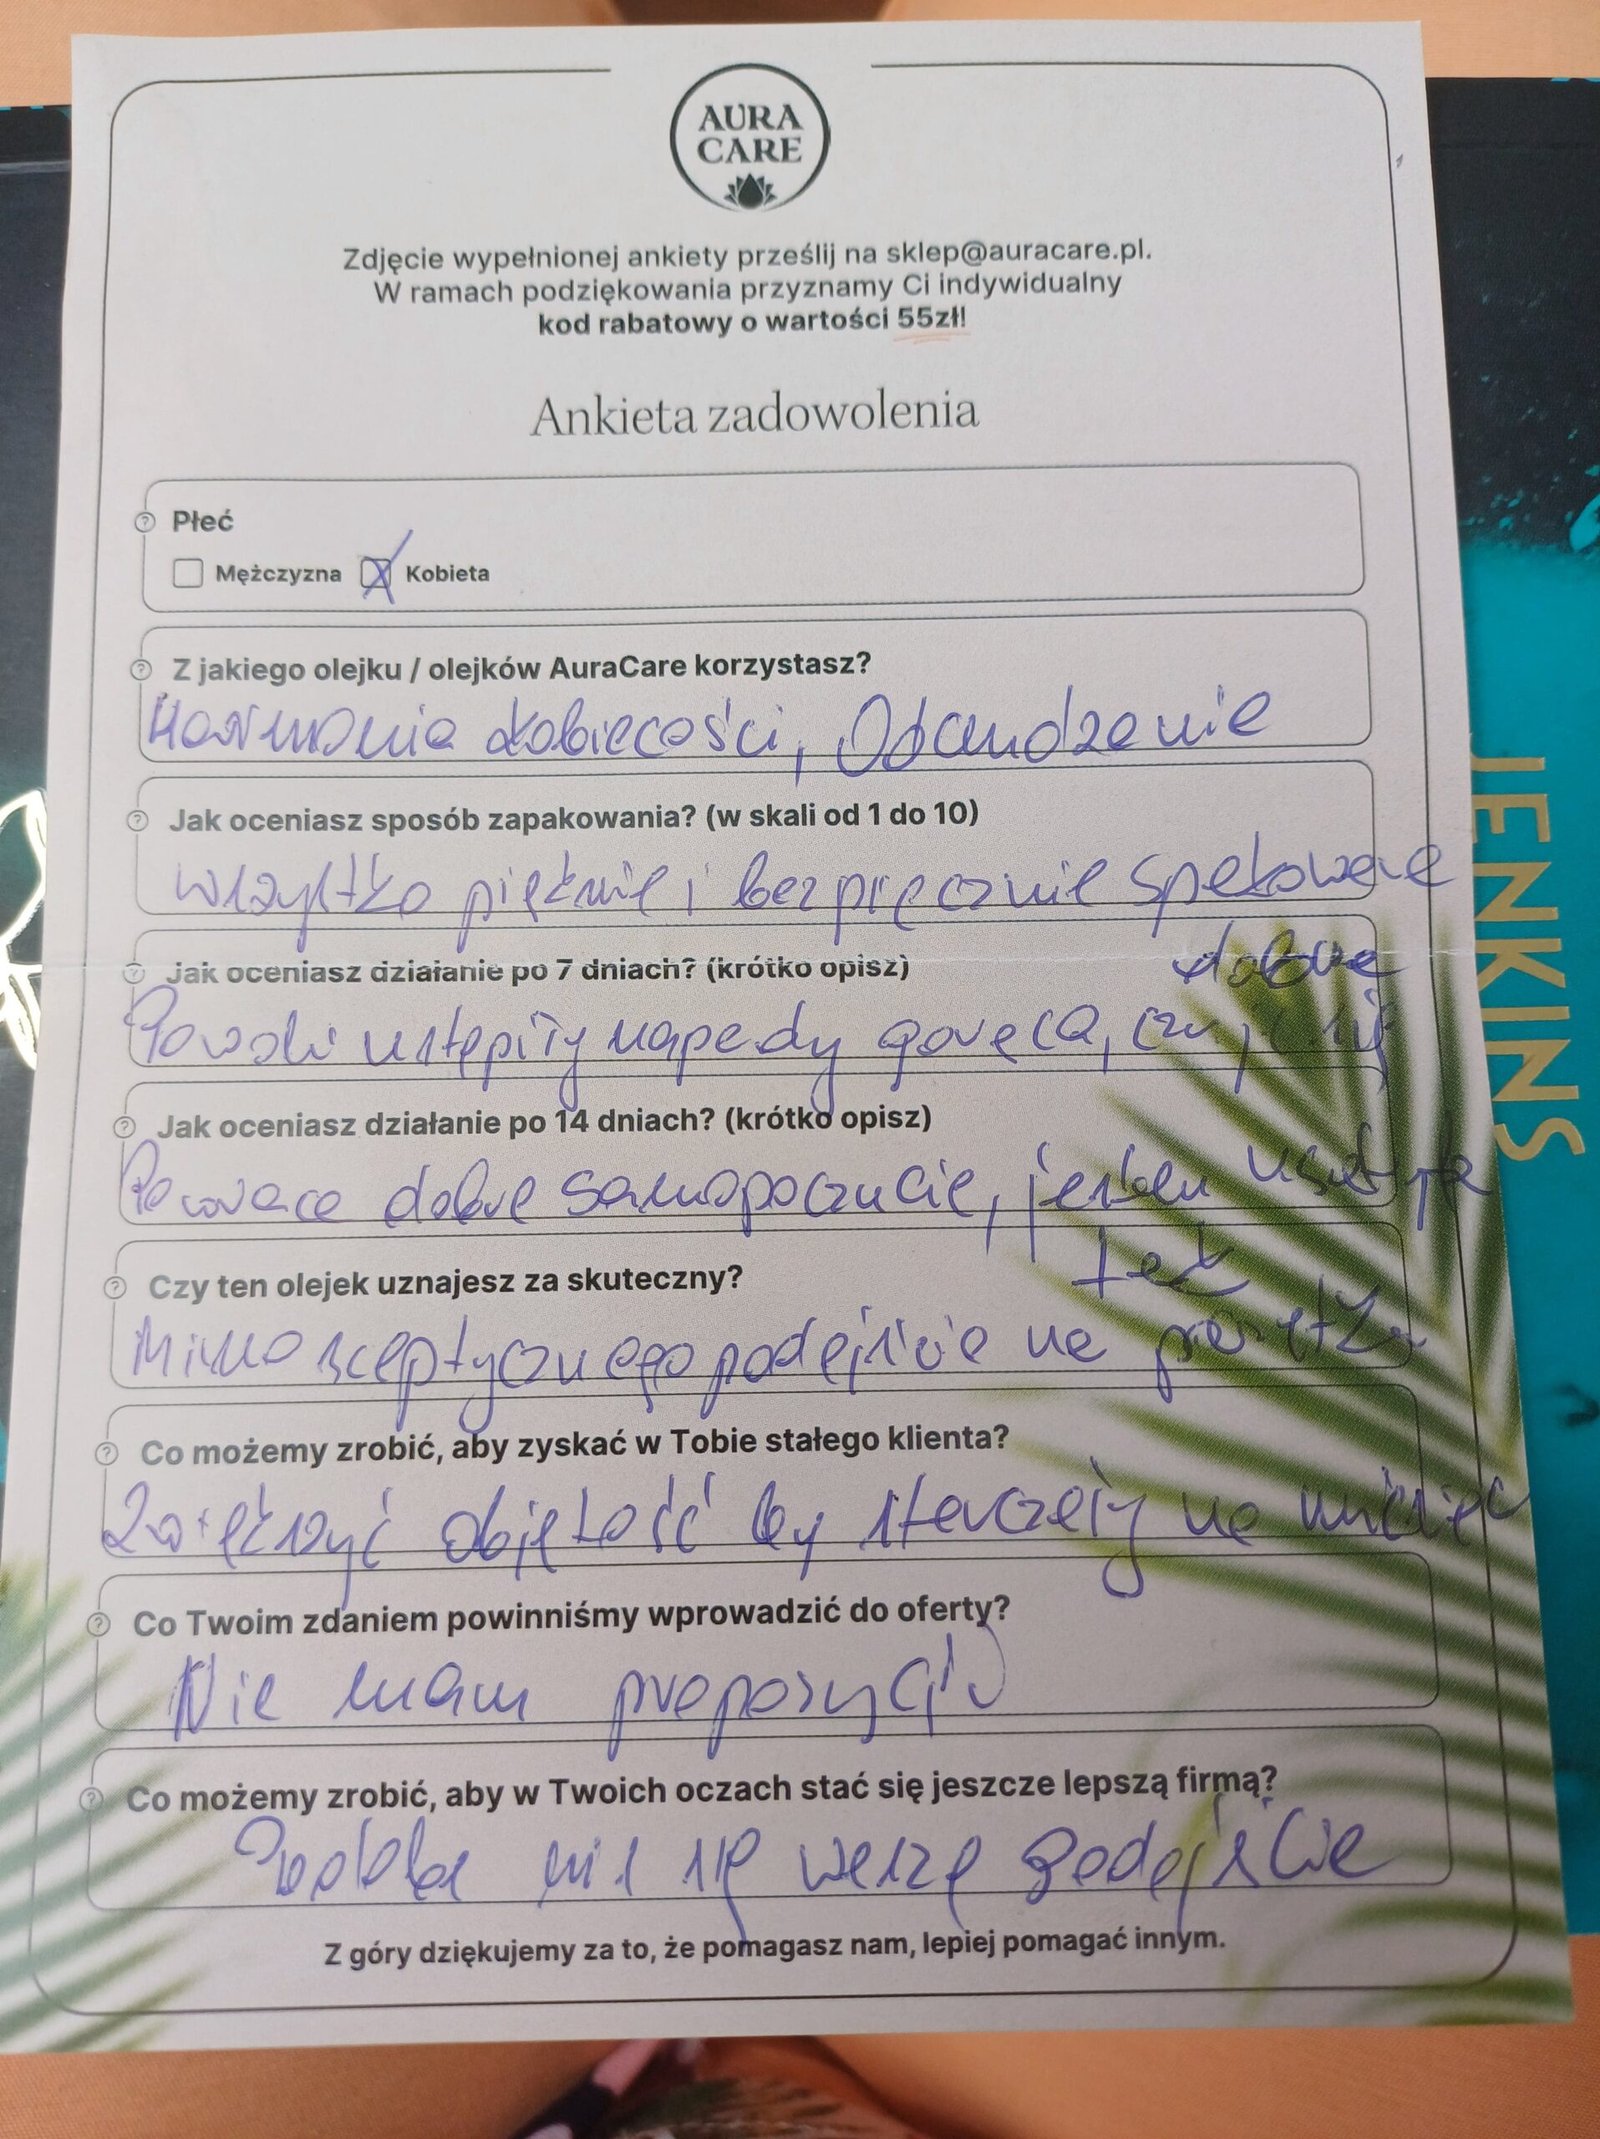 AURA
CARE
Zdjęcie wypełnionej ankiety prześlij na sklep@auracare.pl.
W ramach podziękowania przyznamy Ci indywidualny
kod rabatowy o wartości 55zł!
Ankieta zadowolenia
Płeć
Mężczyzna Kobieta
Z jakiego olejku / olejków AuraCare korzystasz?
Harmonia kobiecości, Odchudzanie
Jak oceniasz sposób zapakowania? (w skali od 1 do 10)
Wszystko pięknie i bezpiecznie spakowane
Jak oceniasz działanie po 7 dniach? (krótko opisz)
dobrze
Powoli ustąpiły napady gorąca, czuję się
Jak oceniasz działanie po 14 dniach? (krótko opisz)
dobre samopoczucie, jestem
Czy ten olejek uznajesz za skuteczny?
tak
Mimo sceptycznego podejścia na początku
Co możemy zrobić, aby zyskać w Tobie stałego klienta?
Zwiększyć objętość by starczały na miesiąc
Co Twoim zdaniem powinniśmy wprowadzić do oferty?
Nie mam propozycji
Co możemy zrobić, aby w Twoich oczach stać się jeszcze lepszą firmą?
Podoba mi się wasze podejście
Z góry dziękujemy za to, że pomagasz nam, lepiej pomagać innym.
JENKINS